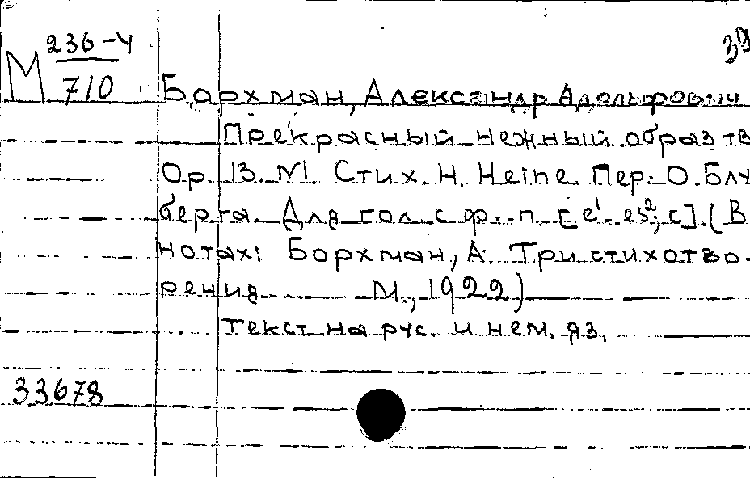 М 236-4
710
39
Борхман, Александр Адольфович
Прекрасный нежный образ тв
Ор. 13. №1 Стих. H. Heine. Пер. О. Блу
берга. Для гол. с ф.-п. [e¹-es²; c]. (В
нотах: Борхман, А. Три стихотво-
рения М., 1922)
Текст на рус. и нем. яз.
33678